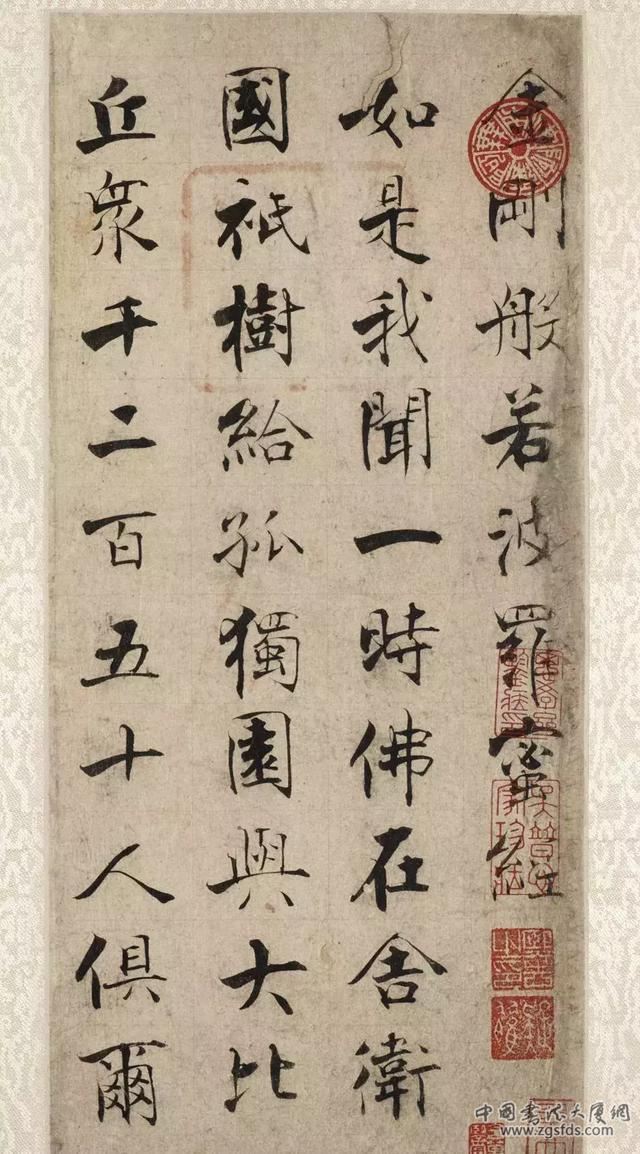 金剛般若波羅蜜經
如是我聞一時佛在舍衛
國祇樹給孤獨園與大比
丘衆千二百五十人俱爾
中国书法大厦網
www.zgsfds.com